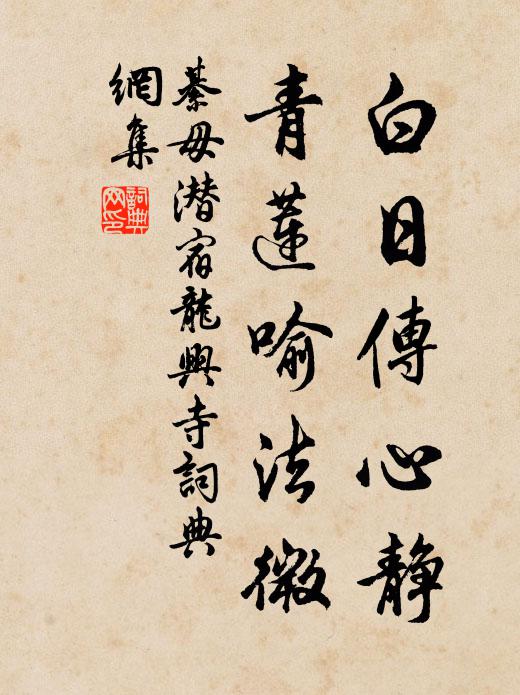 白日傳心静
青蓮喻法微
綦毋潜宿龍興寺詞典
網集
詞典
网印